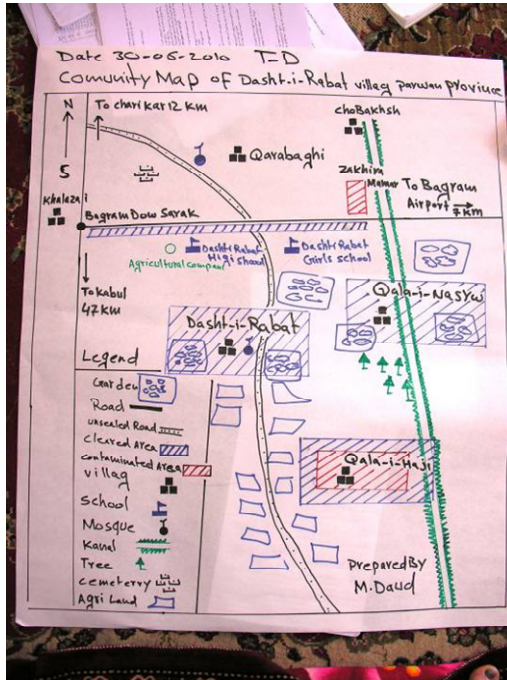 Date 30-06-2010 T-D
Comunity Map of Dasht-i-Rabat villeg parwan province
N
To charikar 12 KM
choBakhsh
S
Qarabaghi
Zakhim
Mamar
To Bagram
Airport
7 KM
Khalazai
Bagram Dow Sarak
Dasht-i Rabat
High shool
Dasht-i Rabat
Girls school
Agricultural company
To Kabul
47 KM
Qala-i-Nasrw
Dasht-i-Rabat
Legend
Garden
Road
unsealed Road
cleared Area
contaminated Area
villag
School
Mosque
Kanal
Tree
cemeterry
Agri Land
Qala-i-Haji
Prepared By
M.Daud